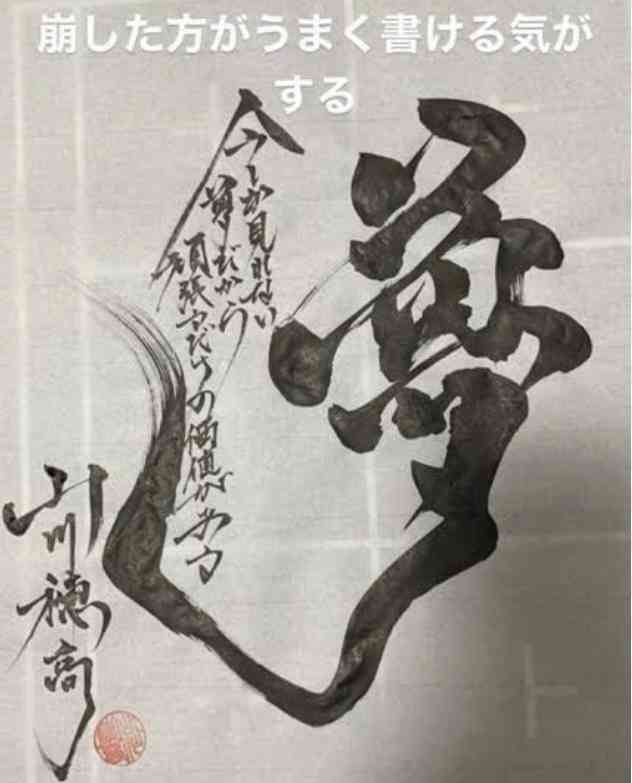 崩した方がうまく書ける気が
する
夢
今しか見れない
夢だから
頑張るだけの価値がある
山川穂高